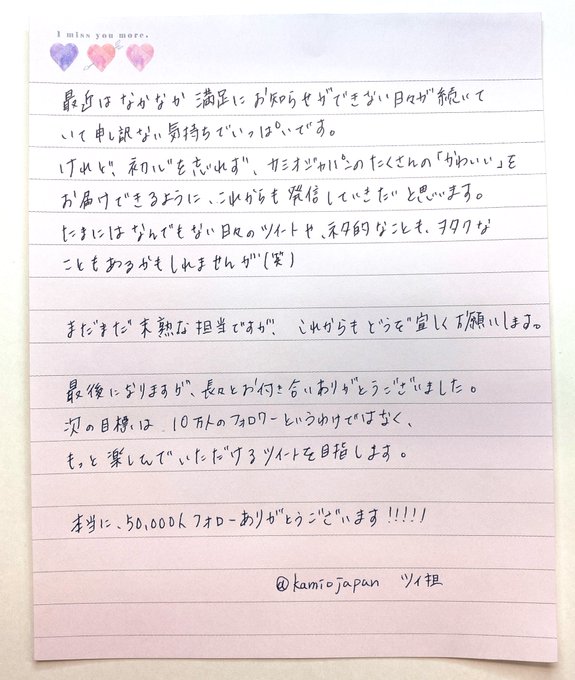 I miss you more.
最近はなかなか満足にお知らせができない日々が続いて
いて申し訳ない気持ちでいっぱいです。
けれど、初心を忘れず、カミオジャパンのたくさんの「かわいい」を
お届けできるように、これからも発信していきたいと思います。
たまにはなんでもない日々のツイートや、ネタ的なことも、ヲタクな
こともあるかもしれませんが(笑)
まだまだ未熟な担当ですが、これからもどうぞ宜しくお願いします。
最後になりますが、長々とお付き合いありがとうございました。
次の目標は、10万人のフォロワーというわけではなく、
もっと楽しんでいただけるツイートを目指します。
本当に、50,000人フォローありがとうございます!!!!!
@kamiojapan ツイ担